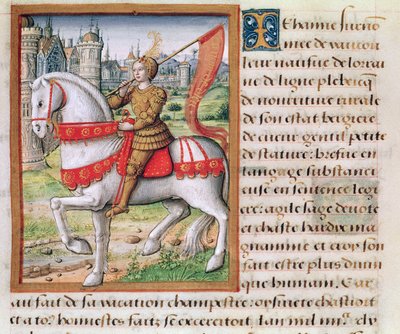 Jehanne surno
mee de vaucou
leur natifue de lorrai
ne de ligne plebeicque
de nourriture rurale
de son estat bergiere
de cueur gentil petite
de stature: briefue en
langage substanci
euse en sentence leg
ere: agile sage deuote
et chaste hardie ma
gnanime et croy son
fait estre plus diuin
que humain. Car
au fait de sa vacation champestre: or
et a to honnestes faitz se excercitoit. Lan mil